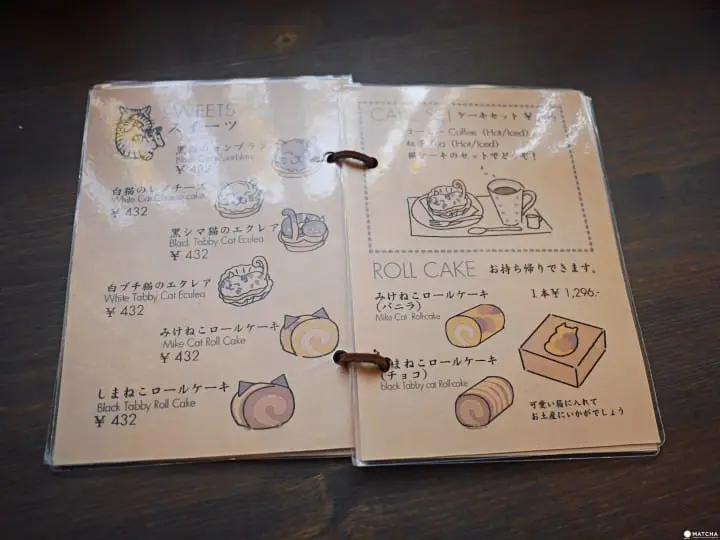 SWEETS
スイーツ
黒猫のモンブラン
Black Cat
¥ 432
白猫のレアチーズ
White Cat Cheesecake
¥ 432
黒シマ猫のエクレア
Black Tabby Cat Eculea
¥ 432
白ブチ猫のエクレア
White Tabby Cat Eculea
¥ 432
みけねこロールケーキ
Mike Cat Roll Cake
¥ 432
しまねこロールケーキ
Black Tabby Roll Cake
¥ 432
CAKE SET ケーキセット ¥
コーヒー Coffee (Hot/Iced)
紅茶 Tea (Hot/Iced)
猫ケーキのセットでどうぞ!
ROLL CAKE お持ち帰りできます。
みけねこロールケーキ 1本¥ 1,296.-
(バニラ)
Mike Cat Roll-cake
しまねこロールケーキ
(チョコ)
black Tabby cat Roll-cake
可愛い猫に入れて
お土産にいかがでしょう
MATCHA